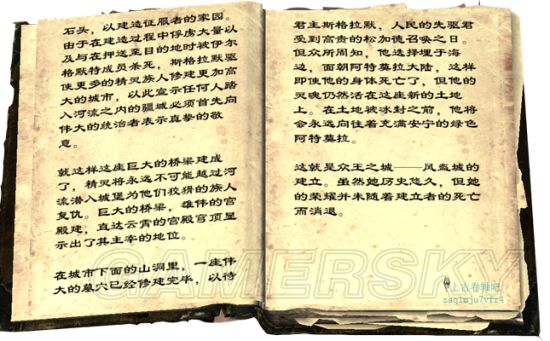 石头，以建造征服者的家园。
由于在建造过程中俘虏大量以
及与在押送至目的地时被伊尔
格默特成员杀死，斯格拉默驱
使更多的精灵族人修建更加高
大的城市，以此宣示任何人踏
入河流之内的疆域必须首先向
伟大的统治者表示真挚的敬
意。
就这样这座巨大的桥梁建成
了，精灵将永远不可能越过河
流潜入城堡为他们狡猾的族人
复仇。巨大的桥梁，雄伟的宫
殿建，直达云霄的宫殿官顶显
示出了其主宰的地位。
在城市下面的山洞里，一座伟
大的墓穴已经修建完毕，以待
君主斯格拉默，人民的先驱君
受到高贵的松加德召唤之日。
但众所周知，他选择埋于海
边，面朝阿特莫拉大陆，这样
即使他的身体死亡了，但他的
灵魂仍然活在这座新的土地
上。在土地被冰封之前，他将
会永远向往着充满安宁的绿色
阿特莫拉。
这就是众王之城——风盔城的
建立。虽然她历史悠久，但她
的荣耀并未随着建立者的死亡
而消退。
GAMERSKY
上古卷轴吧
zaqimju7vfr4